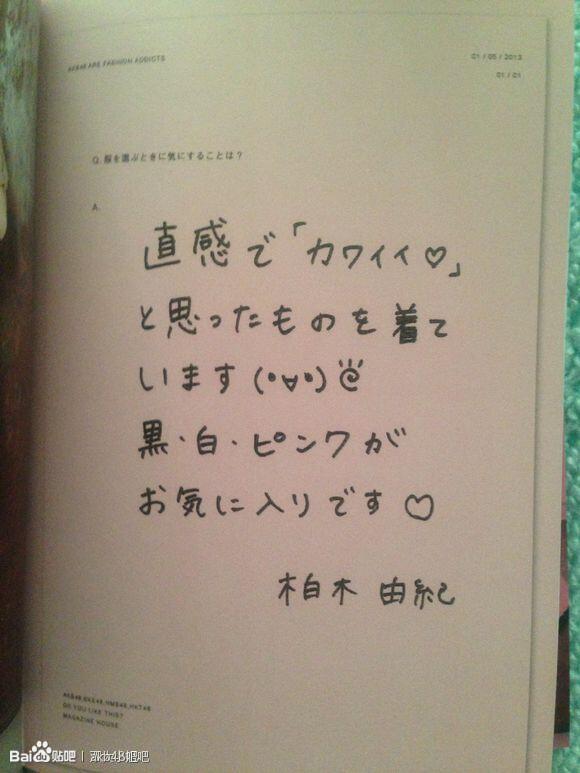 AKB48 ARE FASHION ADDICTS
01 / 05 / 2013
01 / 01
Q. 服を選ぶときに気にすることは？
A.
直感で「カワイイ♡」
と思ったものを着て
います(•∀•)
黒・白・ピンクが
お気に入りです♡
柏木 由紀
AKB48,SKE48,NMB48,HKT48
DO YOU LIKE THIS?
MAGAZINE HOUSE
Bai 贴吧 |